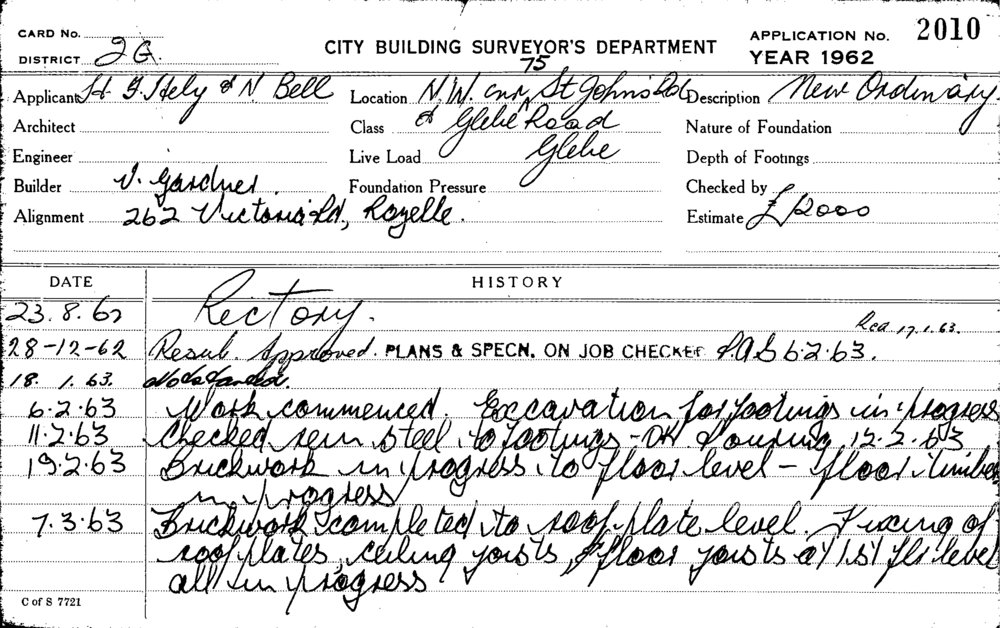 CARD No.
DISTRICT 2G.
CITY BUILDING SURVEYOR'S DEPARTMENT
APPLICATION No. 2010
YEAR 1962
Applicant H. G. Hely & N Bell
Architect
Engineer
Builder V. Gardner.
Alignment 262 Victoria Rd, Rozelle.
75
Location N.W. cnr, St John's Rd
Class & Glebe Road
Live Load Glebe
Foundation Pressure
Description New Ordinary.
Nature of Foundation
Depth of Footings
Checked by
Estimate £12000
DATE HISTORY
23.8.62 Rectory.
Rcd 17.1.63.
28-12-62 Resub. Approved. PLANS & SPECN. ON JOB CHECKED 6.2.63.
18. 1. 63.
6.2.63 Work commenced. Excavation for footings in progress
11.2.63 Checked rein steel to footings - OK Pouring 12.2.63
19.2.63 Brickwork in progress to floor level - floor timber
in progress
7.3.63 Brickwork completed to roof plate level. Fixing of
roof plates, ceiling joists, & floor joists at 1st flr level
all in progress
C of S 7721